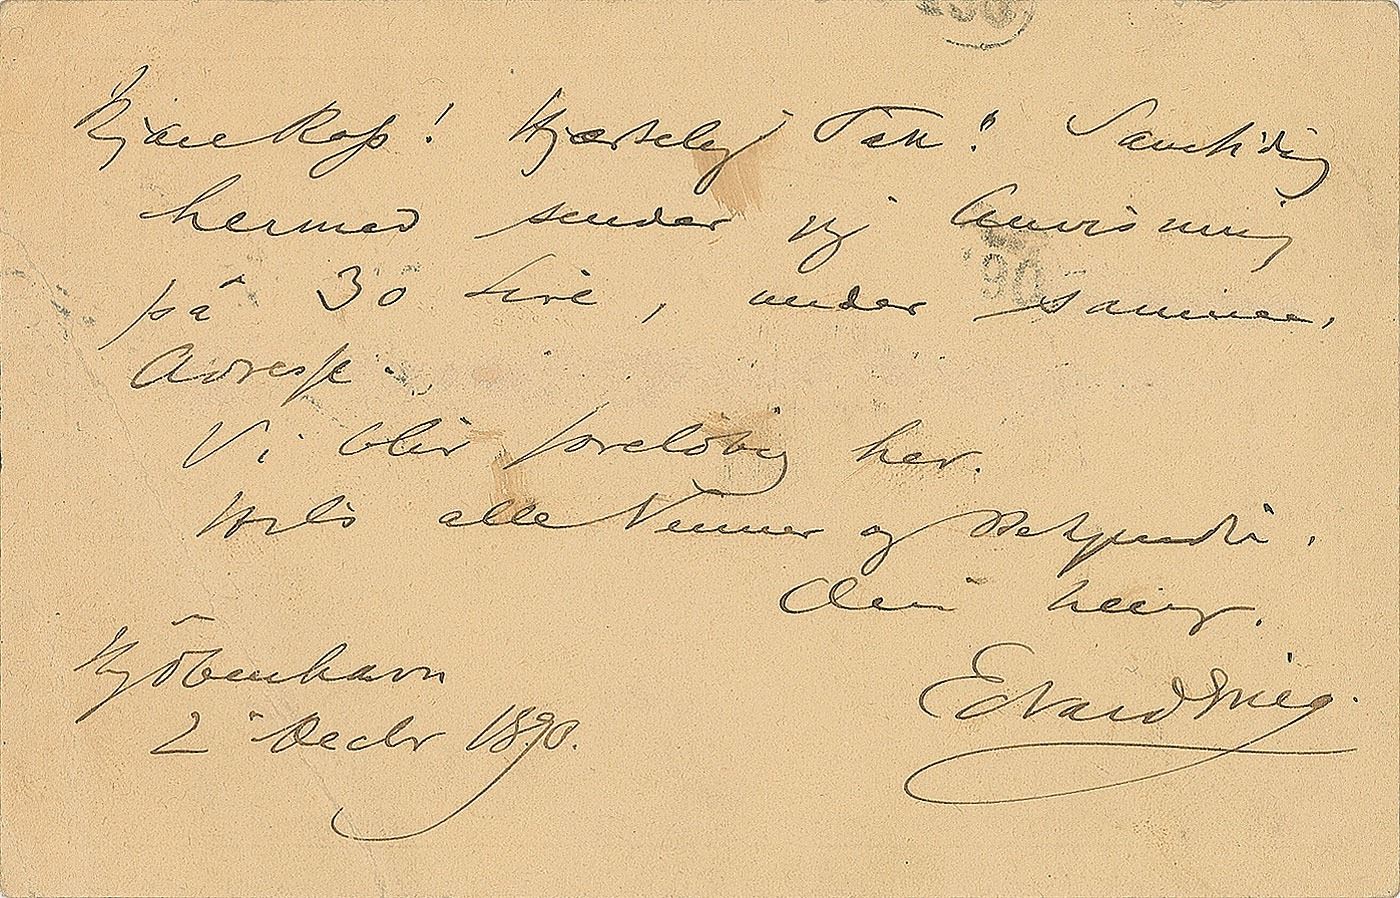 Kjære Ross! Hjærtelig Tak! Samtidig
hermed sender jeg Anvisning
på 30 Lire, under samme
Adresse.
Vi blir foreløbig her.
Hils alle Venner og Bekjendte.
Din heng.
Edvard Grieg.
Kjöbenhavn
2 Decbr 1890.
90